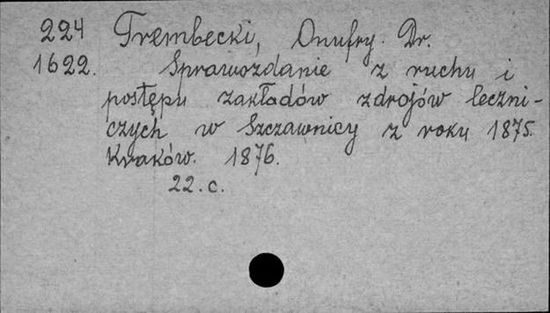 224 Trembecki, Onufry. Dr.
1622. Sprawozdanie z ruchu i
postępu zakładów zdrojów leczni-
czych w Szczawnicy z roku 1875.
Kraków. 1876.
22. c.